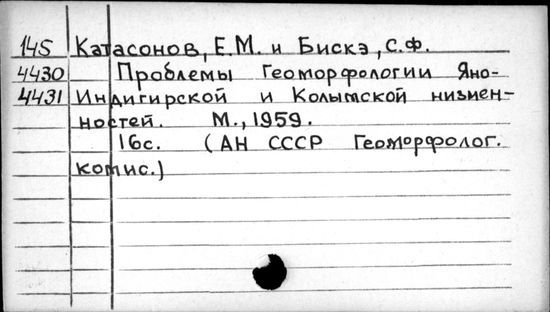 145 Катасонов, Е.М. и Бискэ, С.Ф.
4430 Проблемы Геоморфологии Яно-
4431 Индигирской и Колымской низмен-
ностей. М., 1959.
16с. (АН СССР Геоморфолог.
комис.)